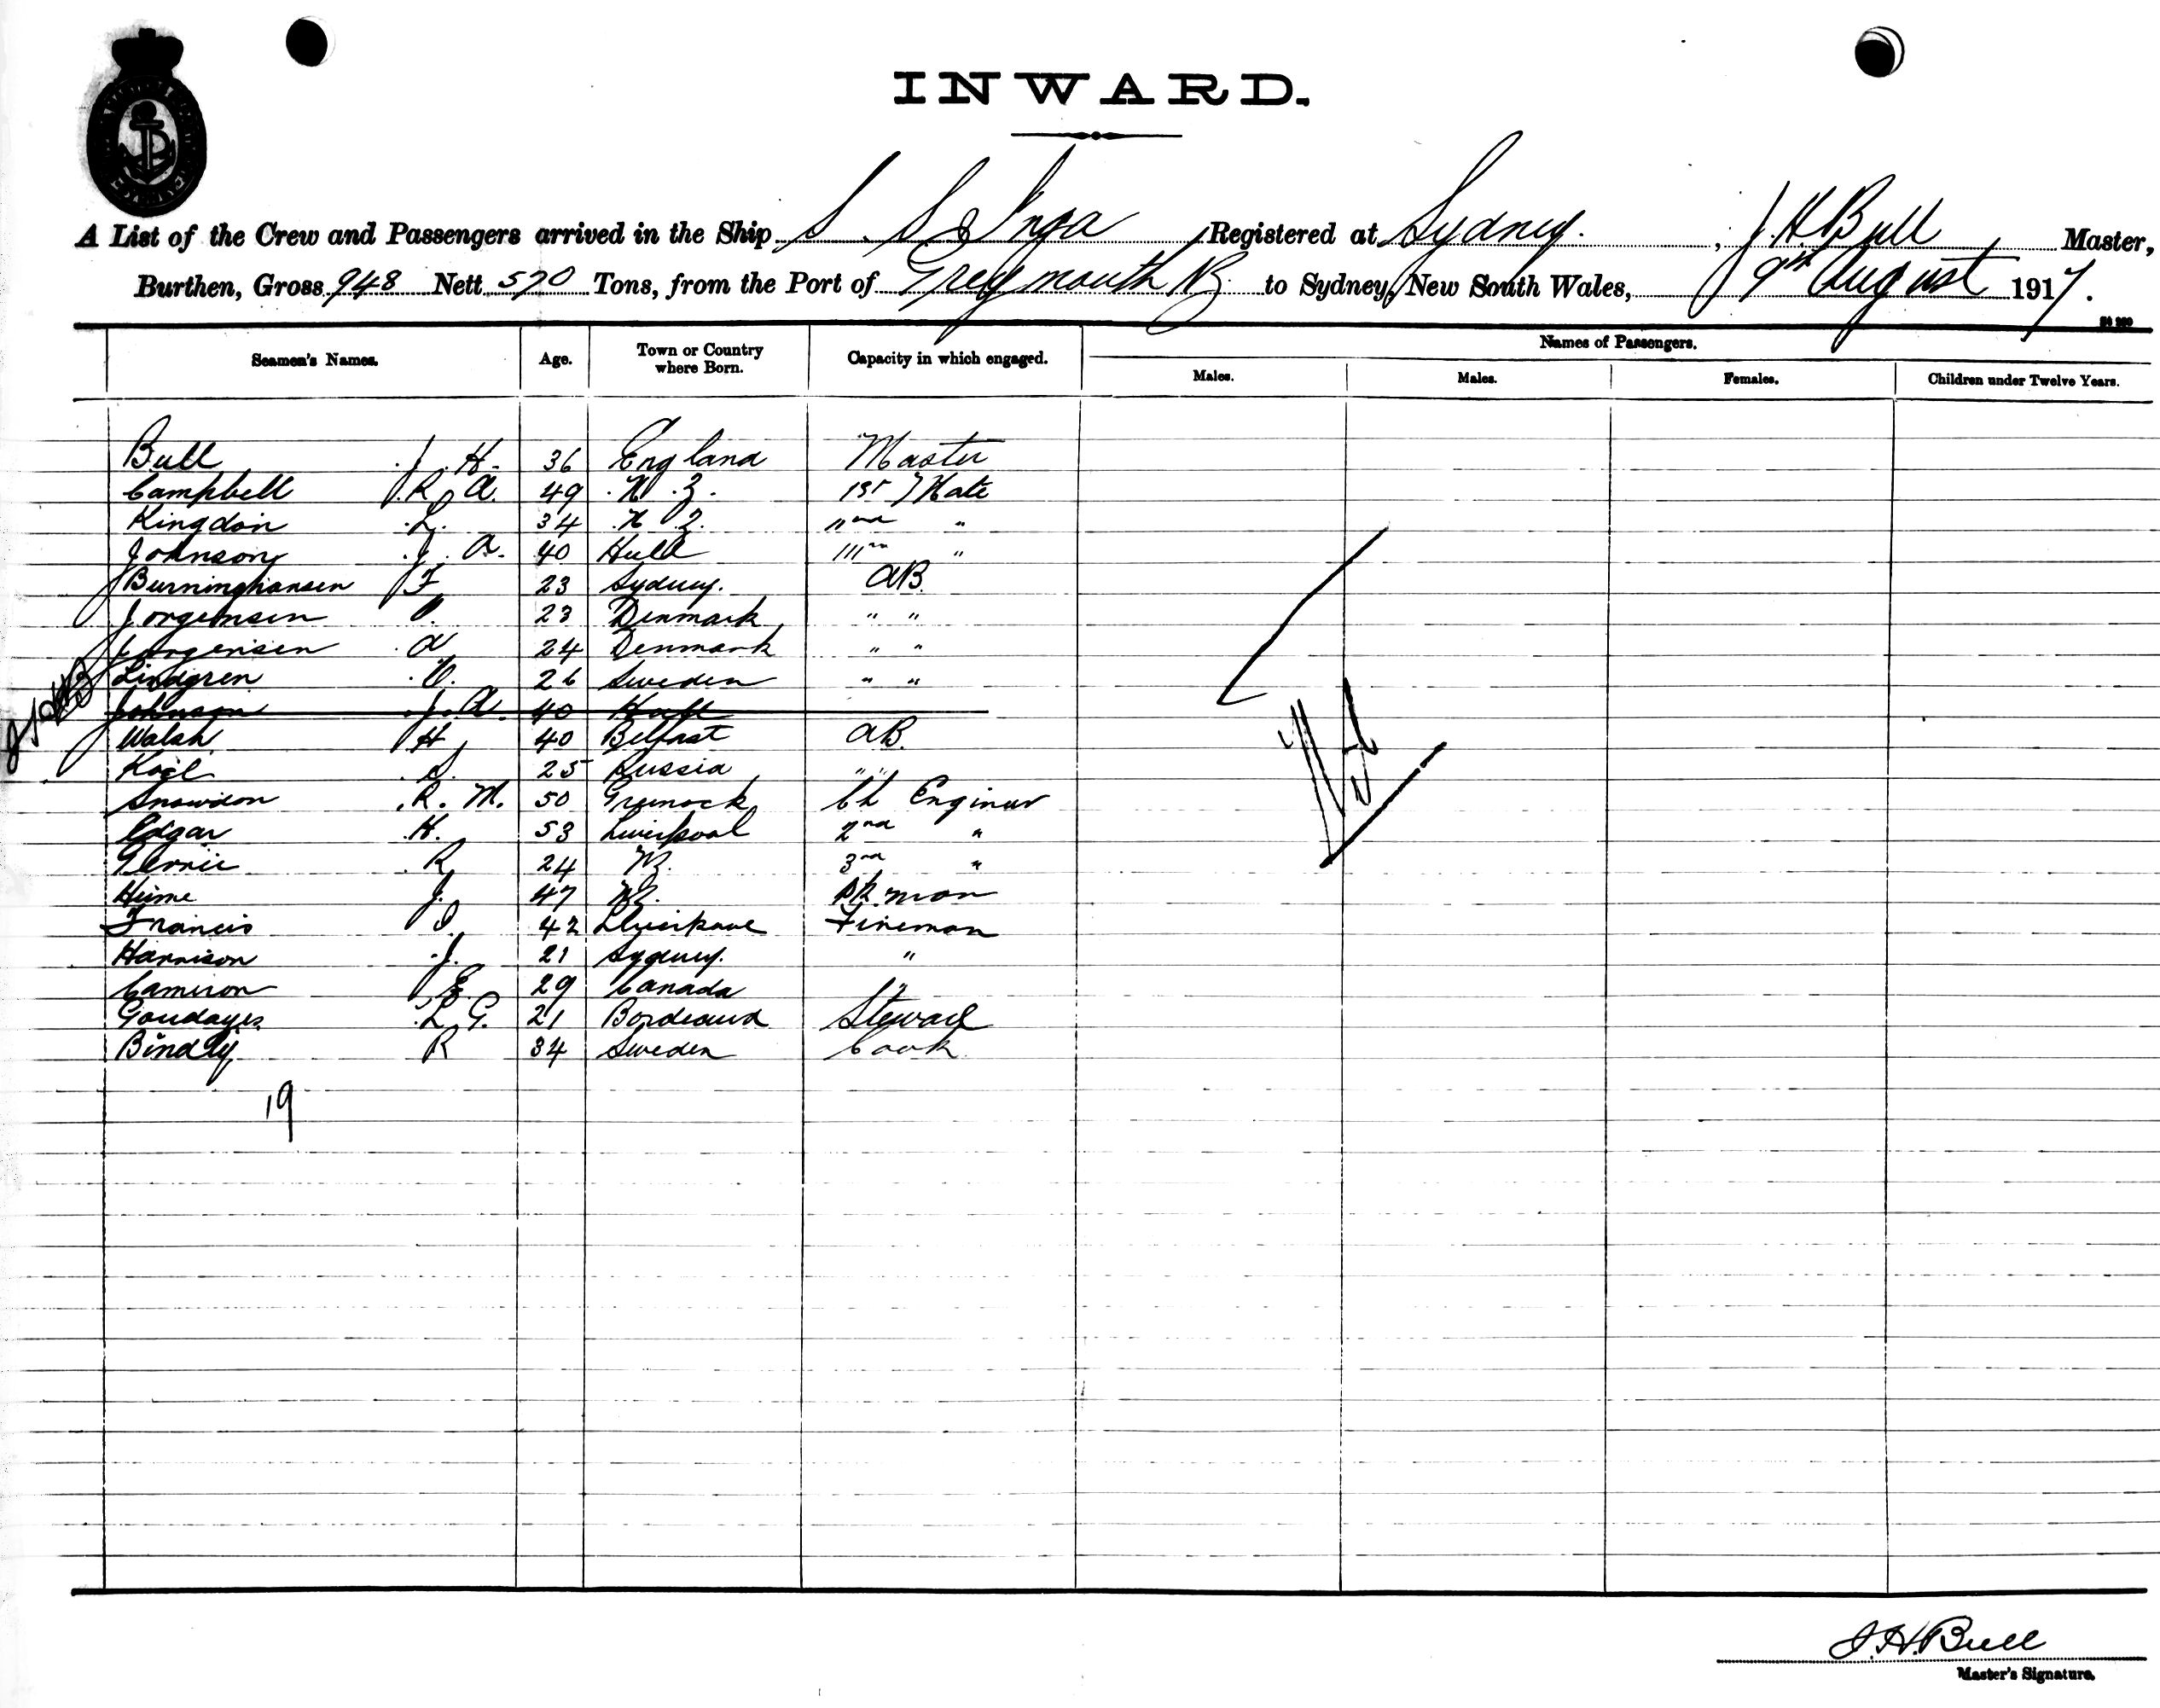 INWARD.
A List of the Crew and Passengers arrived in the Ship S. S. Inga Registered at Sydney. , J. H. Bull Master,
Burthen, Gross 948 Nett 570 Tons, from the Port of Greymouth NZ to Sydney, New South Wales, 9th August 1917.
Names of Passengers.
Seamen's Names. Age. Town or Country where Born. Capacity in which engaged. Males. Males. Females. Children under Twelve Years.
Bull J. H. 36 England Master
Campbell R. A. 49 N. Z. 1st Mate
Kingdon L. 34 N Z. IInd "
Johnson J. A. 40 Hull IIIrd "
Burninghansen F 23 Sydney. AB.
Jorgemsen 23 Denmark " "
Jorgensen A 24 Denmark " "
Lindgren O. 26 Sweden " "
Johnson J. A. 40 Hull
Walsh H 40 Belfast AB.
25 Russia " "
Snowdon R. M. 50 Greenock Ch Engineer
Edgar H. 53 Liverpool 2nd "
R 24 NZ. 3rd "
Hume J. 47 NZ. Dk. man
Francis 42 Liverpool Fireman
Harrison J. 21 Sydney. "
Cameron E. 29 Canada "
L. G. 21 Bordeaux Steward
Bindly R 34 Sweden Cook
19
Nil
J. H. Bull
Master's Signature.